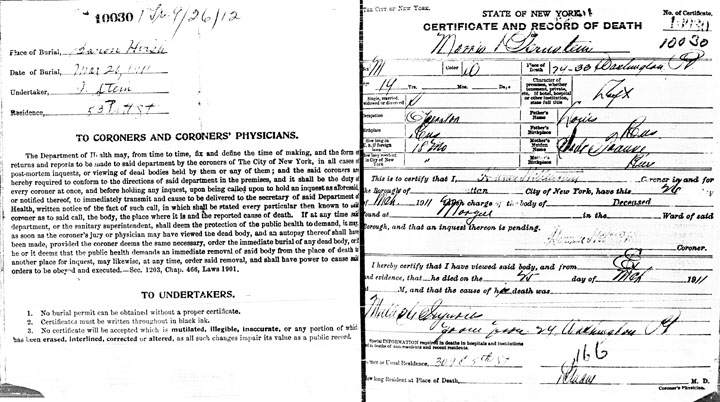 10030
9/26/12
Place of Burial, Baron Hirsh
Date of Burial,
Undertaker, Stein
Residence,
TO CORONERS AND CORONERS' PHYSICIANS.
The Department of Health may, from time to time, fix and define the time of making, and the form of
returns and reports to be made to said department by the coroners of The City of New York, in all cases of
post-mortem inquests, or viewing of dead bodies held by them or any of them; and the said coroners are
hereby required to conform to the directions of said department in the premises, and it shall be the duty of
every coroner at once, and before holding any inquest, upon being called upon to hold an inquest as aforesaid,
or notified thereof, to immediately transmit and cause to be delivered to the secretary of said Department of
Health, written notice of the fact of such call, in which shall be stated every particular then known to said
coroner as to said call, the body, the place where it is and the reported cause of death. If at any time said
department, or the sanitary superintendent, shall deem the protection of the public health to demand, it may,
as soon as the coroner's jury or physician may have viewed the dead body, and an autopsy thereof shall have
been made, provided the coroner deems the same necessary, order the immediate burial of any dead body, or if
he or it deems that the public health demands an immediate removal of said body from the place of death to
another place for inquest, may likewise, at any time, order said removal, and shall have power to cause said
orders to be obeyed and executed.—Sec. 1203, Chap. 466, Laws 1901.
TO UNDERTAKERS.
1. No burial permit can be obtained without a proper certificate.
2. Certificates must be written throughout in black ink.
3. No certificate will be accepted which is mutilated, illegible, inaccurate, or any portion of which
has been erased, interlined, corrected or altered, as all such changes impair its value as a public record.
THE CITY OF NEW YORK.
STATE OF NEW YORK
No. of Certificate.
CERTIFICATE AND RECORD OF DEATH
10030
Morris Bernstein
M Color W Place of Death 24-33 Washington Pl
14 Yrs. Mos. Da.
Character of premises, whether tenement, private, etc. If hotel, hospital or other institution, state full title
Single, married, widowed or divorced S
Occupation Operator Father's Name Louis
Birthplace Rus Father's Birthplace Rus
How long in U.S., if foreign born 18 Mo Mother's Maiden Name
How long resident in City of New York " Mother's Birthplace Rus
This is to certify that I, Coroner in and for
the Borough of City of New York, have this 26
of Mch 1911 charge of the body of Deceased
found at Morgue in the Ward of said
Borough, and that an inquest thereon is pending.
Coroner.
I hereby certify that I have viewed said body, and from
and evidence, that he died on the 25 day of Mch 1911
at M, and that the cause of his death was
Multiple Injuries
from 24 Washington Pl
Special INFORMATION required in deaths in hospitals and institutions
and in deaths of non-residents and recent residents.
Former or Usual Residence, 309 E 5th St
166
How long Resident at Place of Death, M. D.
Coroner's Physician.